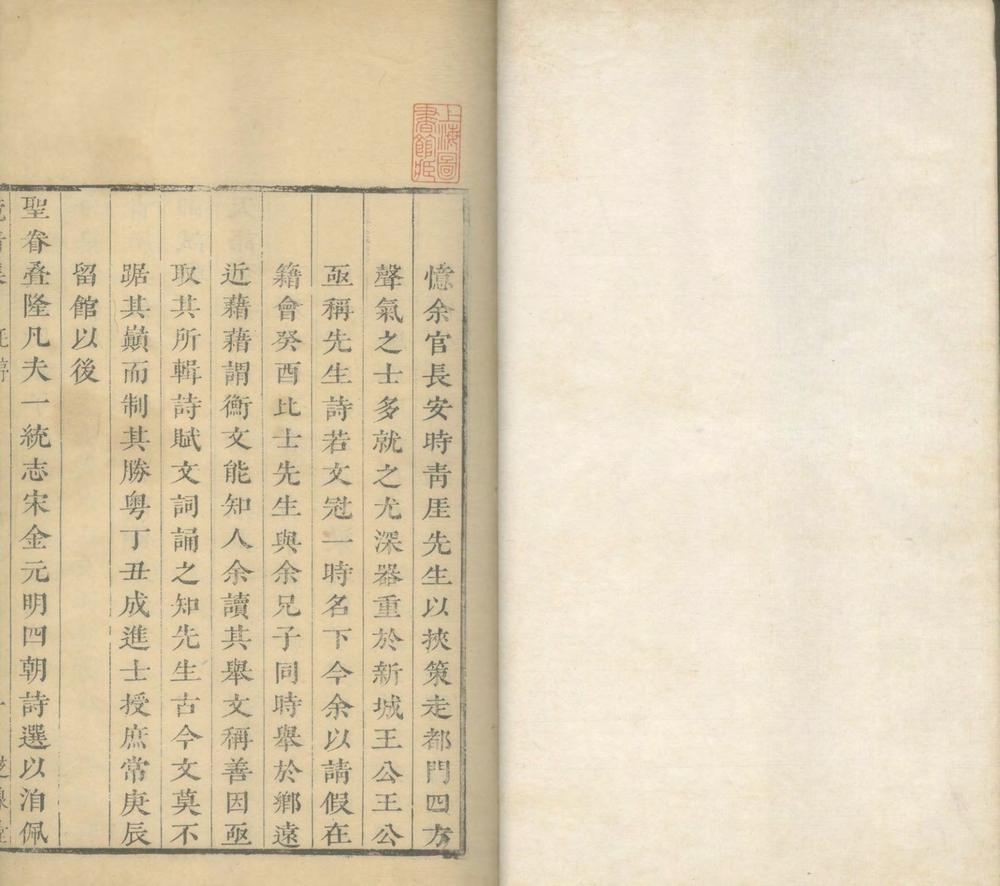 上海圖
書館藏
憶余官長安時靑厓先生以挾策走都門四方
聲氣之士多就之尤深器重於新城王公王公
亟稱先生詩若文冠一時名下今余以請假在
籍會癸酉比士先生與余兄子同時舉於鄉遠
近藉藉謂衡文能知人余讀其舉文稱善因亟
取其所輯詩賦文詞誦之知先生古今文莫不
踞其巔而制其勝粤丁丑成進士授庶常庚辰
留館以後
聖眷叠隆凡夫一統志宋金元明四朝詩選以洎佩